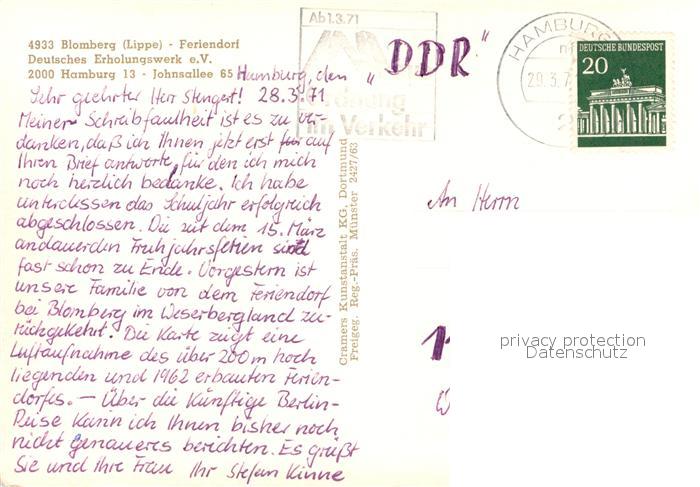 4933 Blomberg (Lippe) - Feriendorf
Deutsches Erholungswerk e.V.
2000 Hamburg 13 - Johnsallee 65
Hamburg, den
28.3.71
Sehr geehrter Herr Stengert!
Meiner Schreibfaulheit ist es zu ver-
danken, daß ich Ihnen jetzt erst auf
Ihren Brief antworte, für den ich mich
noch herzlich bedanke. Ich habe
unterdessen das Schuljahr erfolgreich
abgeschlossen. Die seit dem 15. März
andauernden Frühjahrsferien sind
fast schon zu Ende. Vorgestern ist
unsere Familie von dem Feriendorf
bei Blomberg im Weserbergland zu-
rückgekehrt. Die Karte zeigt eine
Luftaufnahme des über 200m hoch
liegenden und 1962 erbauten Ferien-
dorfes. — Über die künftige Berlin-
Reise kann ich Ihnen bisher noch
nicht genaueres berichten. Es grüßt
Sie und Ihre Frau Ihr Stefan Kinne
Cramers Kunstanstalt KG. Dortmund
Freigeg. Reg.-Präs. Münster 2427/63
Ab 1.3.71
Ordnung
im Verkehr
"DDR"
HAMBURG
29.3.7
DEUTSCHE BUNDESPOST
20
An Herrn
privacy protection
Datenschutz